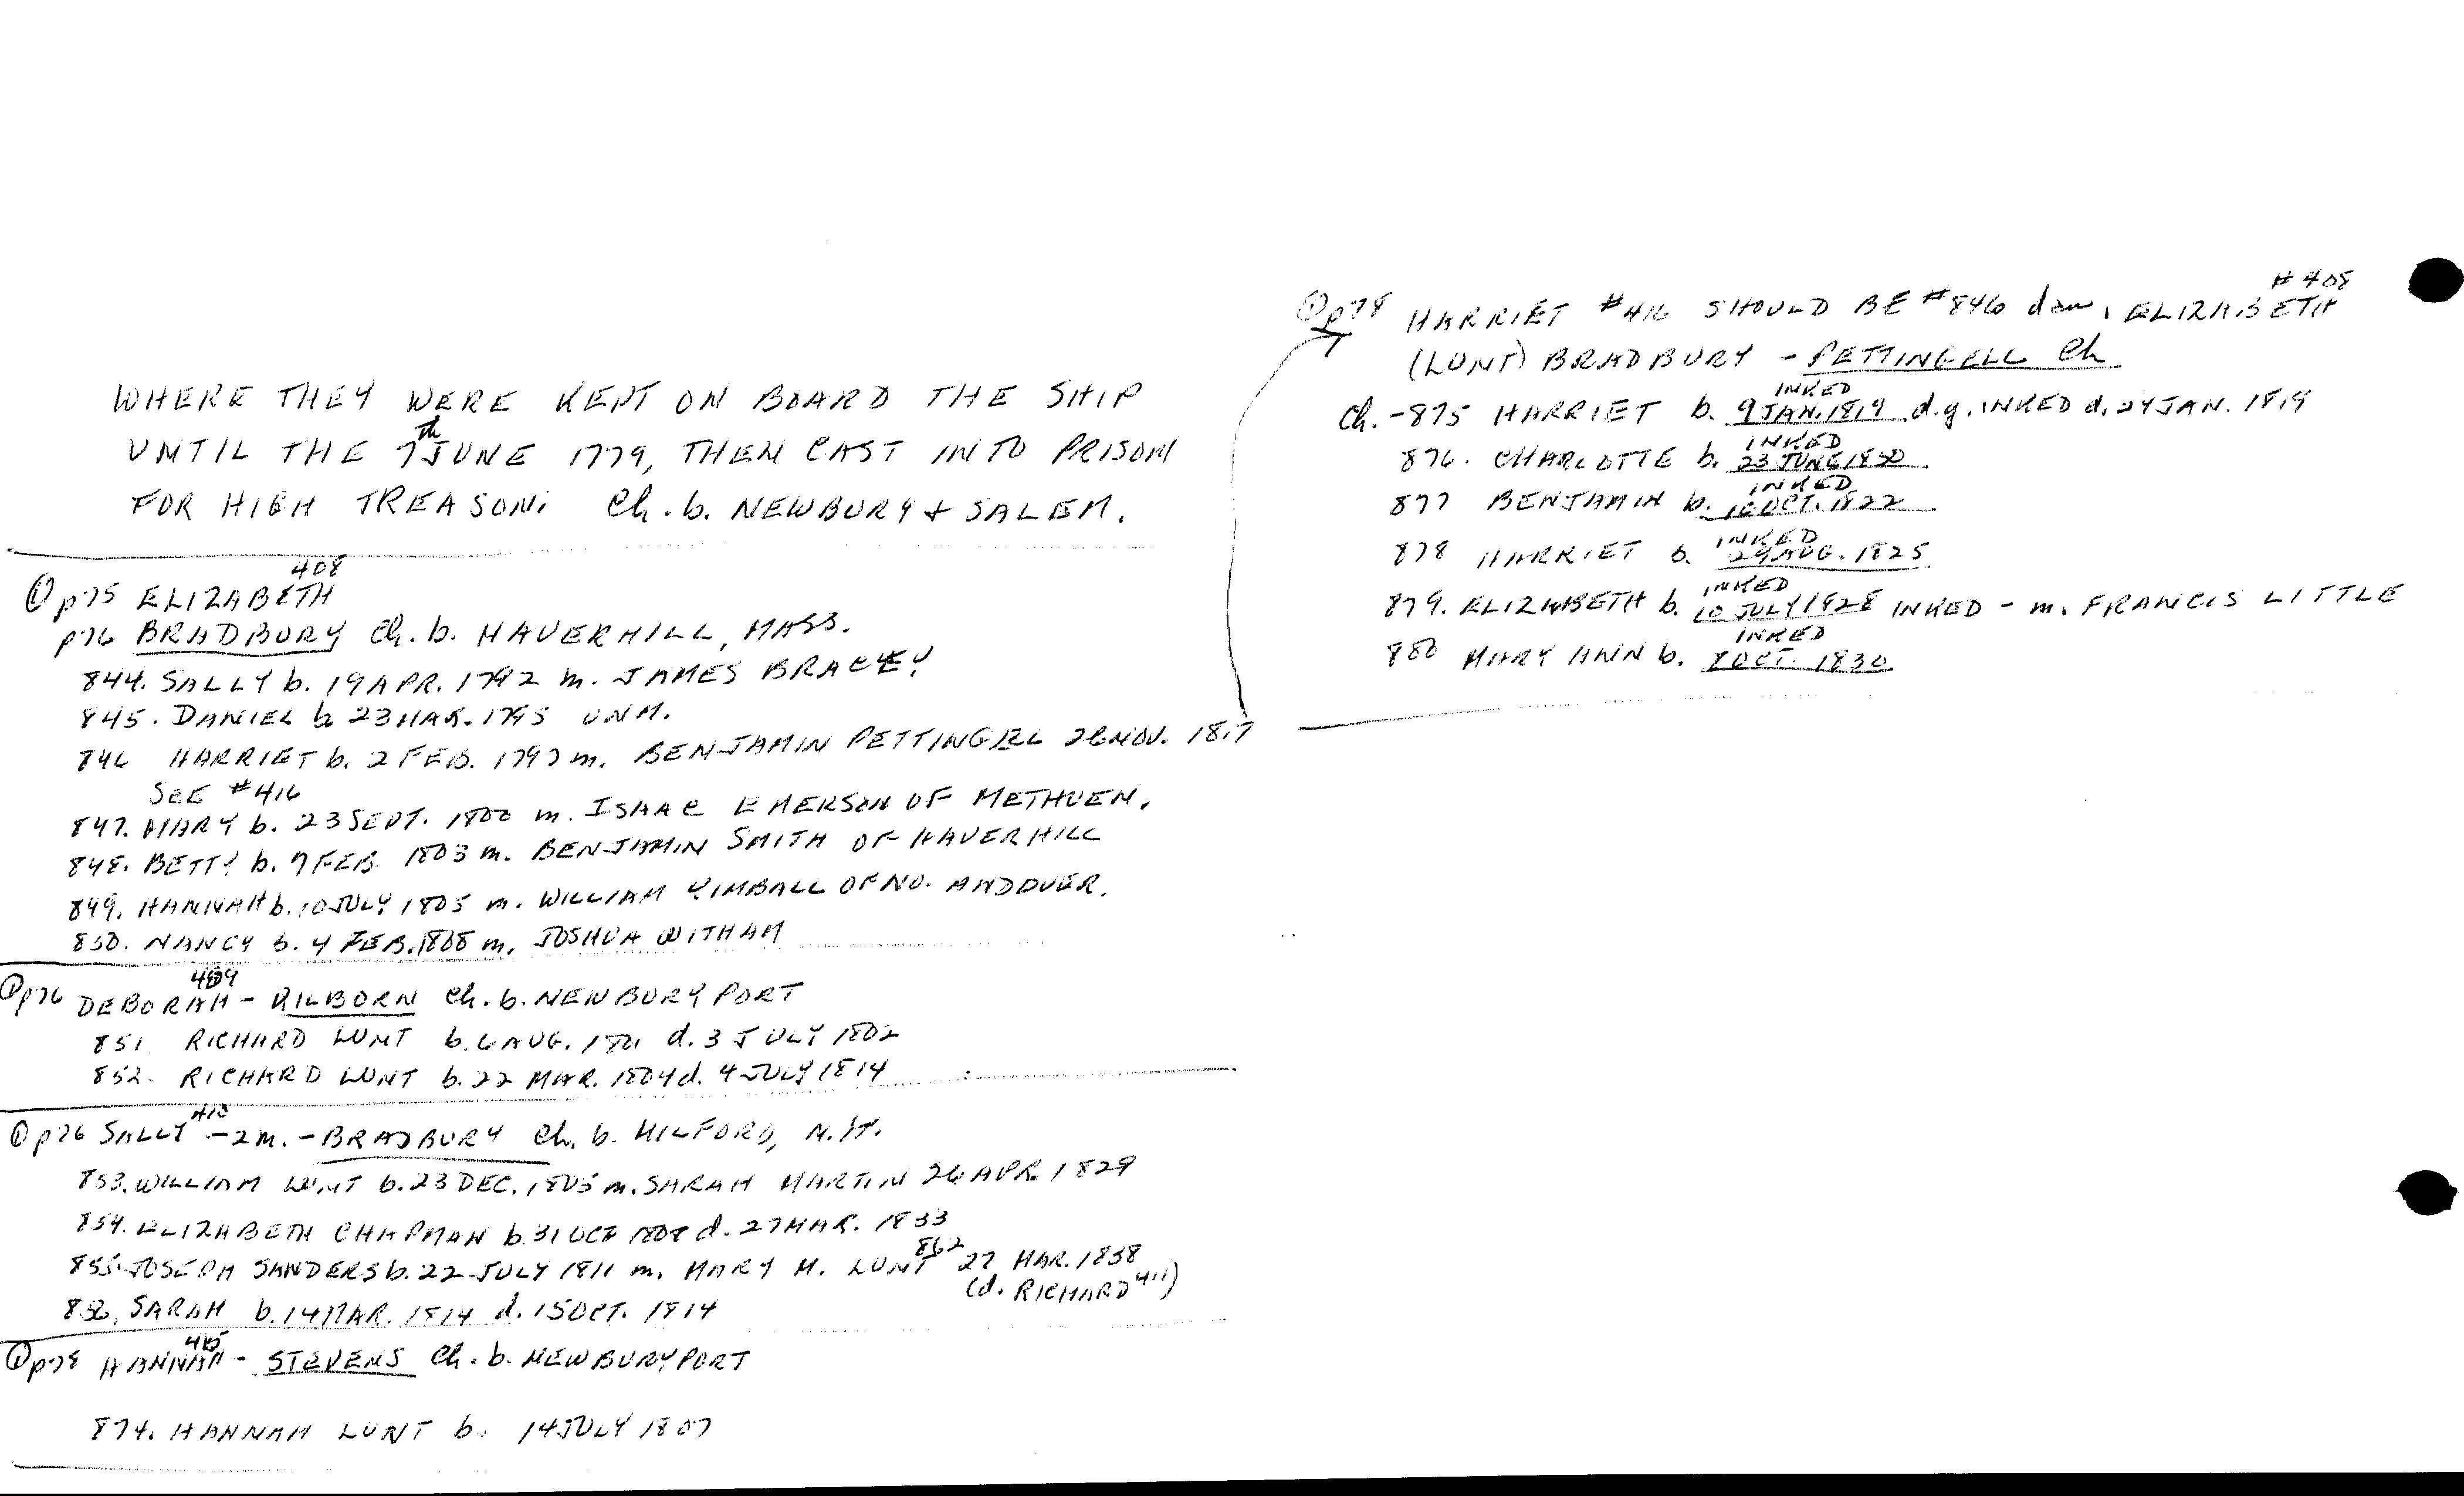 WHERE THEY WERE KEPT ON BOARD THE SHIP
UNTIL THE 7th JUNE 1779, THEN CAST INTO PRISON
FOR HIGH TREASON. Ch. b. NEWBURY & SALEM.
① p75 ELIZABETH 408
p76 BRADBURY Ch. b. HAVERHILL, MASS.
844. SALLY b. 19 APR. 1792 m. JAMES BRACKEY
845. DANIEL b 23 MAR. 1795 UNM.
846 HARRIET b. 2 FEB. 1797 m. BENJAMIN PETTINGELL 28 NOV. 1817
SEE #416
847. MARY b. 23 SEPT. 1800 m. ISAAC EMERSON OF METHUEN.
848. BETTY b. 7 FEB. 1803 m. BENJAMIN SMITH OF HAVERHILL
849. HANNAH b. 10 JULY 1805 m. WILLIAM KIMBALL OF NO. ANDOVER.
850. NANCY b. 4 FEB. 1808 m. JOSHUA WITHAM
① p76 DEBORAH 409 - KILBORN Ch. b. NEWBURYPORT
851 RICHARD LUNT b. 6 AUG. 1801 d. 3 JULY 1802
852. RICHARD LUNT b. 22 MAR. 1804 d. 4 JULY 1814
① p76 SALLY 410 - 2m. - BRADBURY Ch. b. MILFORD, N.H.
853. WILLIAM LUNT b. 23 DEC. 1805 m. SARAH MARTIN 26 APR. 1829
854. ELIZABETH CHAPMAN b. 31 OCT 1808 d. 27 MAR. 1833
855. JOSEPH SANDERS b. 22 JULY 1811 m. MARY M. LUNT 862 27 MAR. 1838
(d. RICHARD 411)
856. SARAH b. 14 MAR. 1814 d. 15 OCT. 1814
① p78 HANNAH 415 - STEVENS Ch. b. NEWBURYPORT
874. HANNAH LUNT b. 14 JULY 1807
① p78 HARRIET #416 SHOULD BE #846 dau. ELIZABETH #408
(LUNT) BRADBURY - PETTINGELL Ch
Ch. - 875 HARRIET b. INKED 9 JAN. 1819 d.y. INKED d. 24 JAN. 1819
876. CHARLOTTE b. INKED 23 JUNE 1820
877 BENJAMIN b. INKED 10 OCT. 1822
878 HARRIET b. INKED 29 AUG. 1825
879. ELIZABETH b. INKED 10 JULY 1828 INKED - m. FRANCIS LITTLE
880 MARY ANN b. INKED 8 OCT. 1830